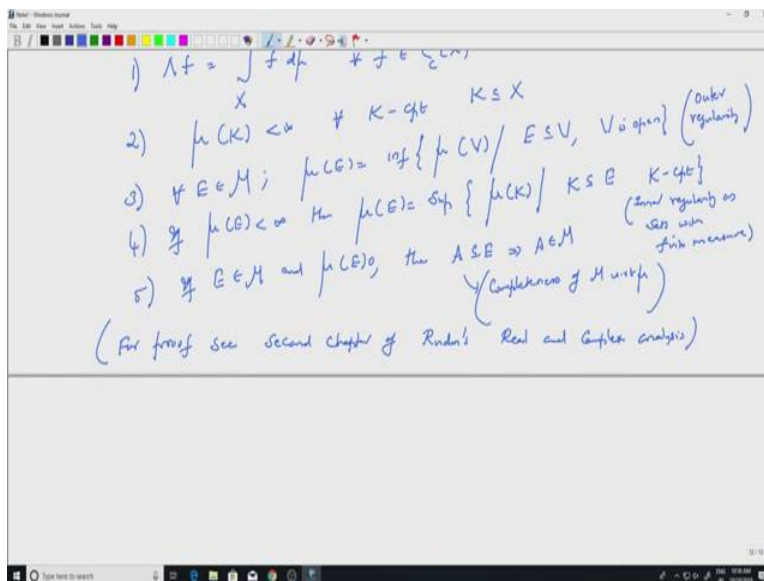 Note1 - Windows Journal
File Edit View Insert Actions Tools Help
1) Λf = ∫_X f dμ ∀ f ∈ C_c(X)
2) μ(K) < ∞ ∀ K-cpt K ⊆ X
3) ∀ E ∈ M; μ(E) = inf{ μ(V) / E ⊆ V, V is open} (Outer regularity)
4) If μ(E) < ∞ then μ(E) = Sup { μ(K) / K ⊆ E K-cpt}
(Inner regularity on sets with finite measure)
5) If E ∈ M and μ(E)0, the A ⊆ E ⇒ A ∈ M
(Completeness of M w.r.t μ)
(For proof see Second chapter of Rudin's Real and Complex analysis)
12/13
Type here to search
ENG